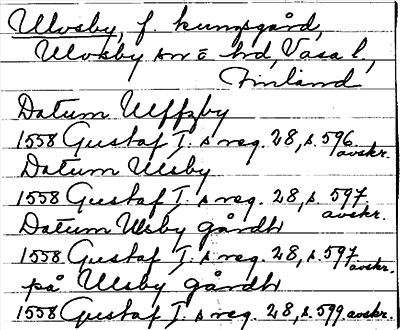 Ulvsby, f. kungsgård,
Ulvsby sn o hd, Vasa l.,
Finland
Datum Ulffzby
1558 Gustaf I:s reg. 28, s. 596.
avskr.
Datum Ulsby
1558 Gustaf I:s reg. 28, s. 597.
avskr.
Datum Ulsby gårdh
1558 Gustaf I:s reg. 28, s. 597
avskr.
på Ulsby gårdh
1558 Gustaf I:s reg. 28, s. 599 avskr.